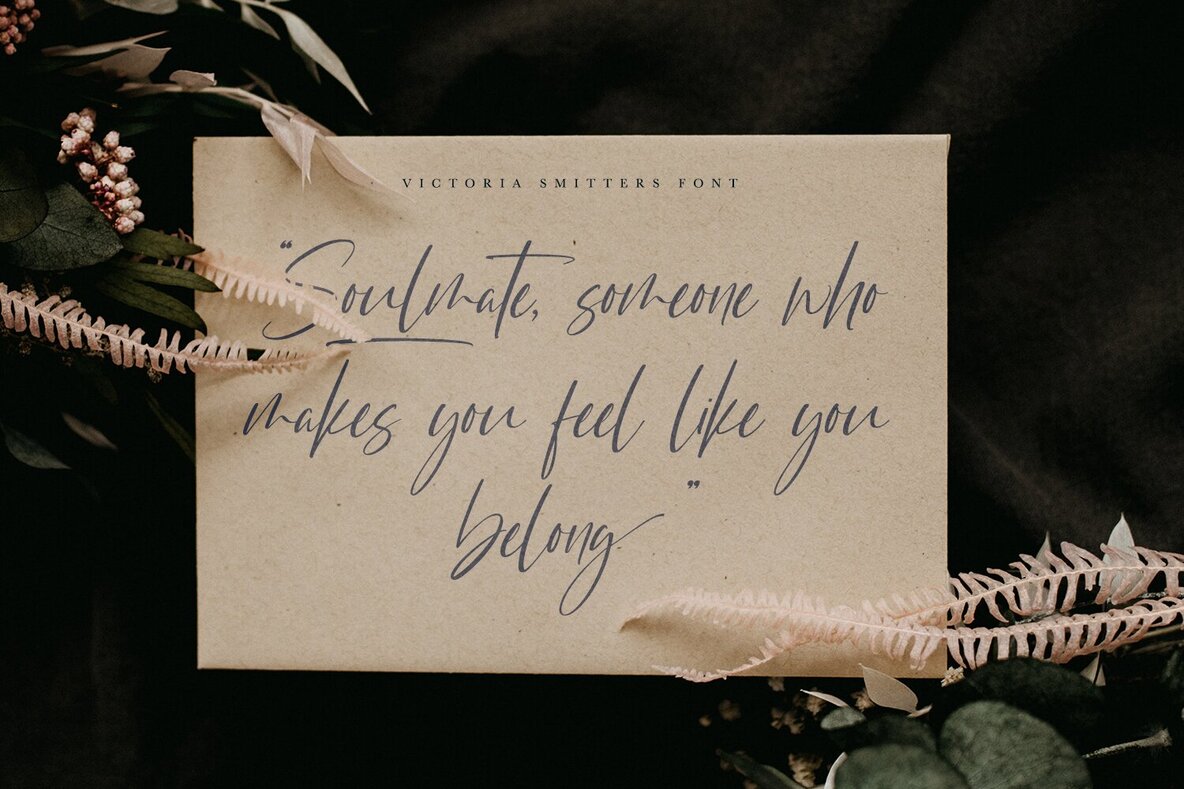 VICTORIA SMITTERS FONT
“Soulmate, someone who
makes you feel like you
belong”